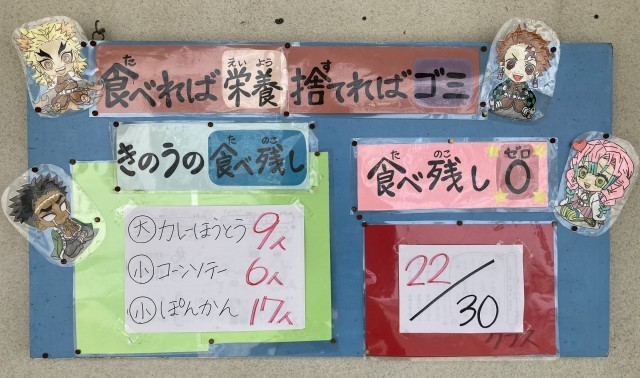 食べれば栄養捨てればゴミ
きのうの食べ残し
大 カレーほうとう 9人
小 コーンソテー 6人
小 ぽんかん 17人
食べ残し0
22/30
クラス